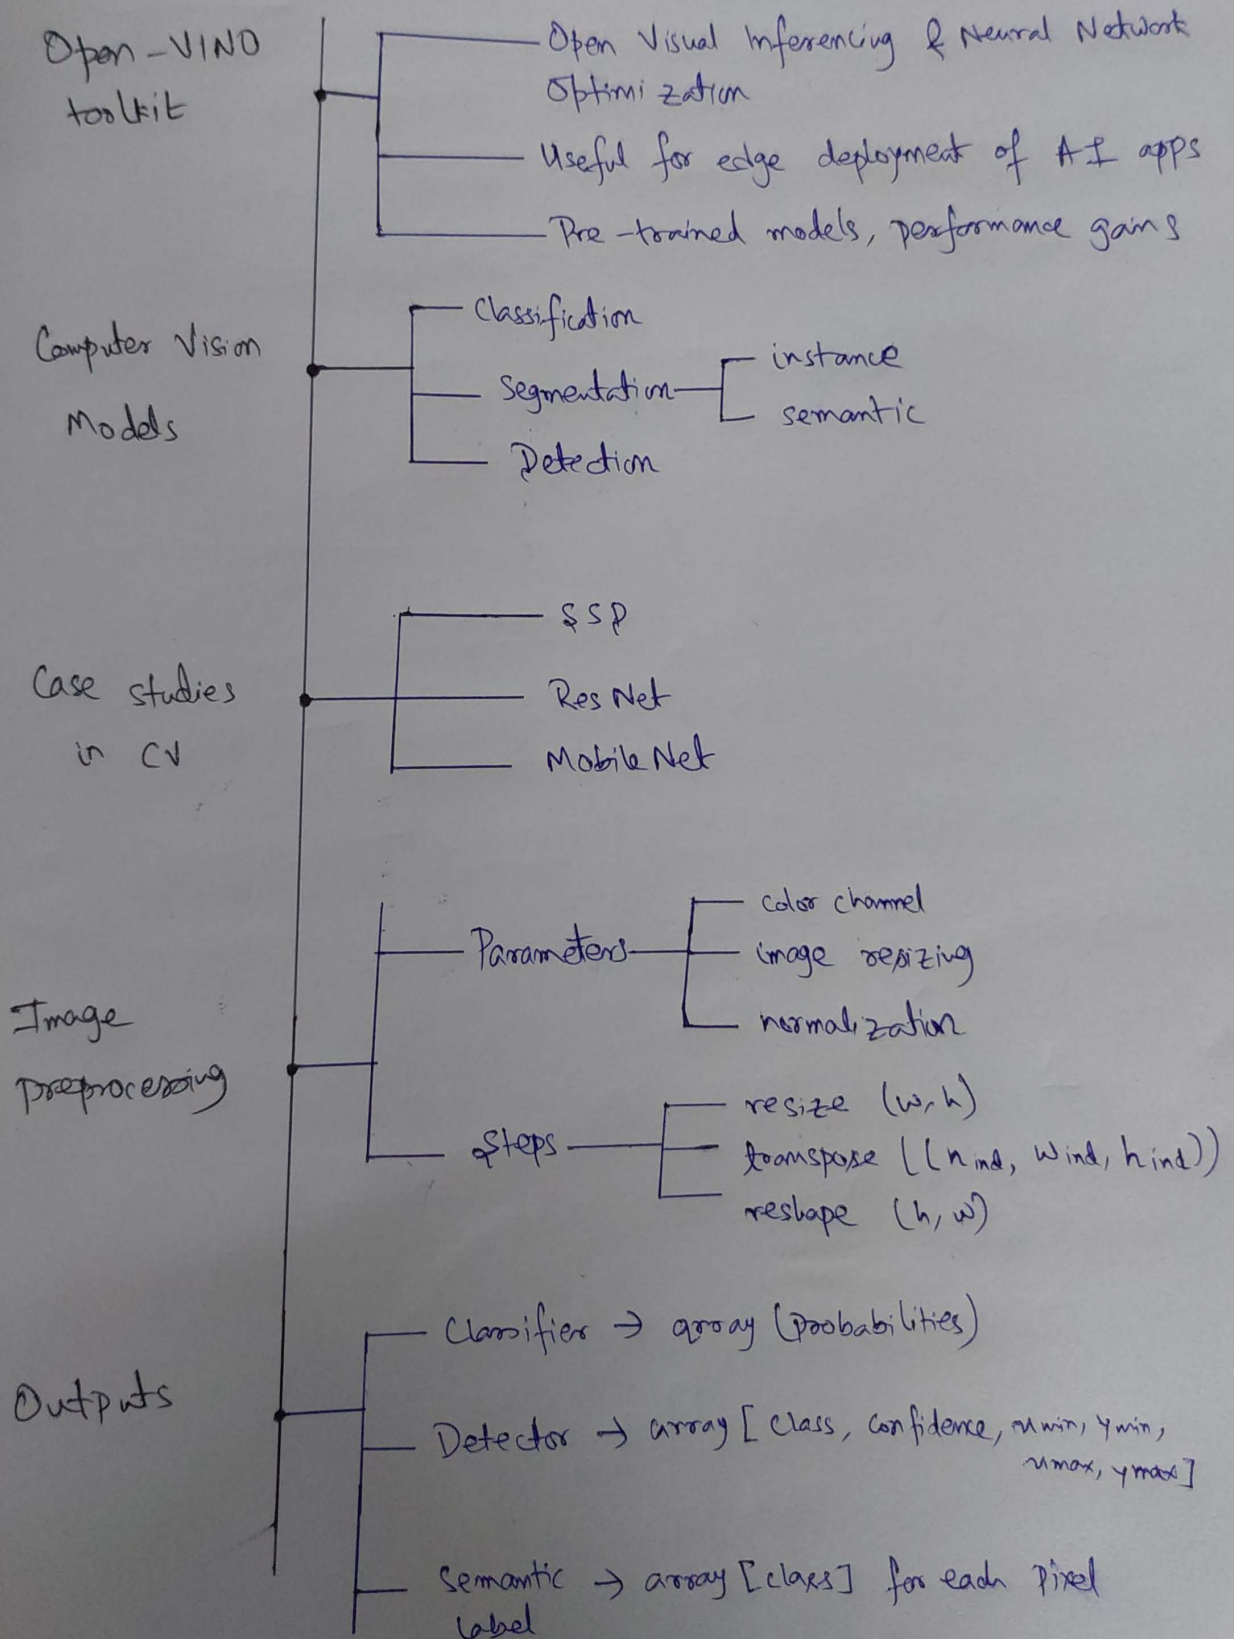 Open-VINO
toolkit
Open Visual Inferencing & Neural Network
Optimization
Useful for edge deployment of AI apps
Pre-trained models, performance gains
Computer Vision
Models
Classification
Segmentation
instance
semantic
Detection
Case studies
in CV
SSD
ResNet
MobileNet
Image
preprocessing
Parameters
color channel
image resizing
normalization
Steps
resize (w,h)
transpose ((nind, wind, hind))
reshape (h,w)
Outputs
Classifier → array (probabilities)
Detector → array [class, confidence, xmin, ymin,
xmax, ymax]
Semantic → array [class] for each pixel
label